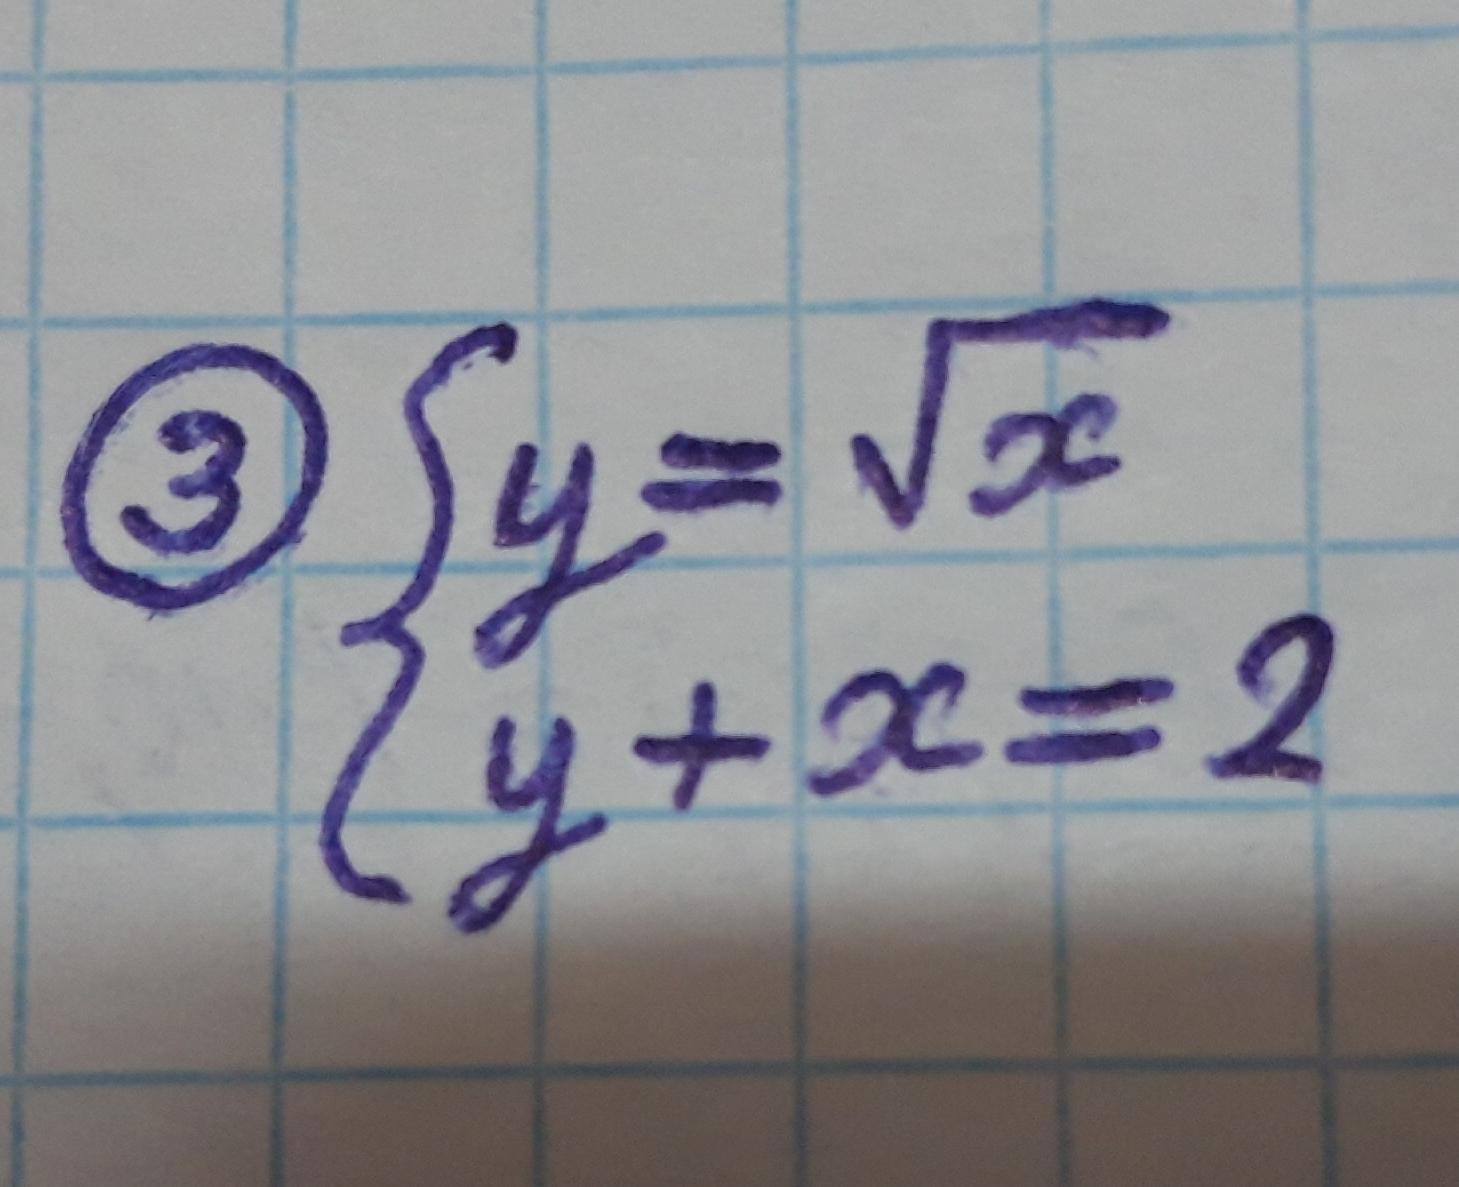 ③ { y = √x
y + x = 2